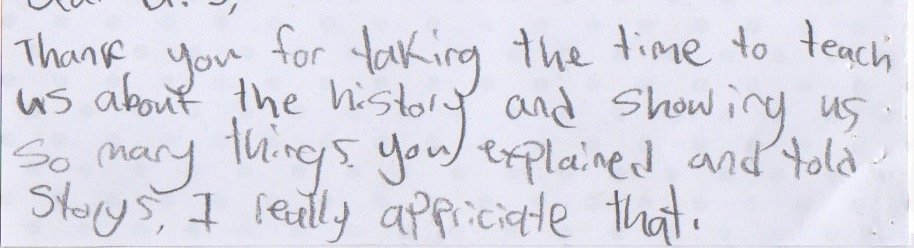 Thank you for taking the time to teach
us about the history and showing us
so many things. you explained and told
storys. I really appriciate that.